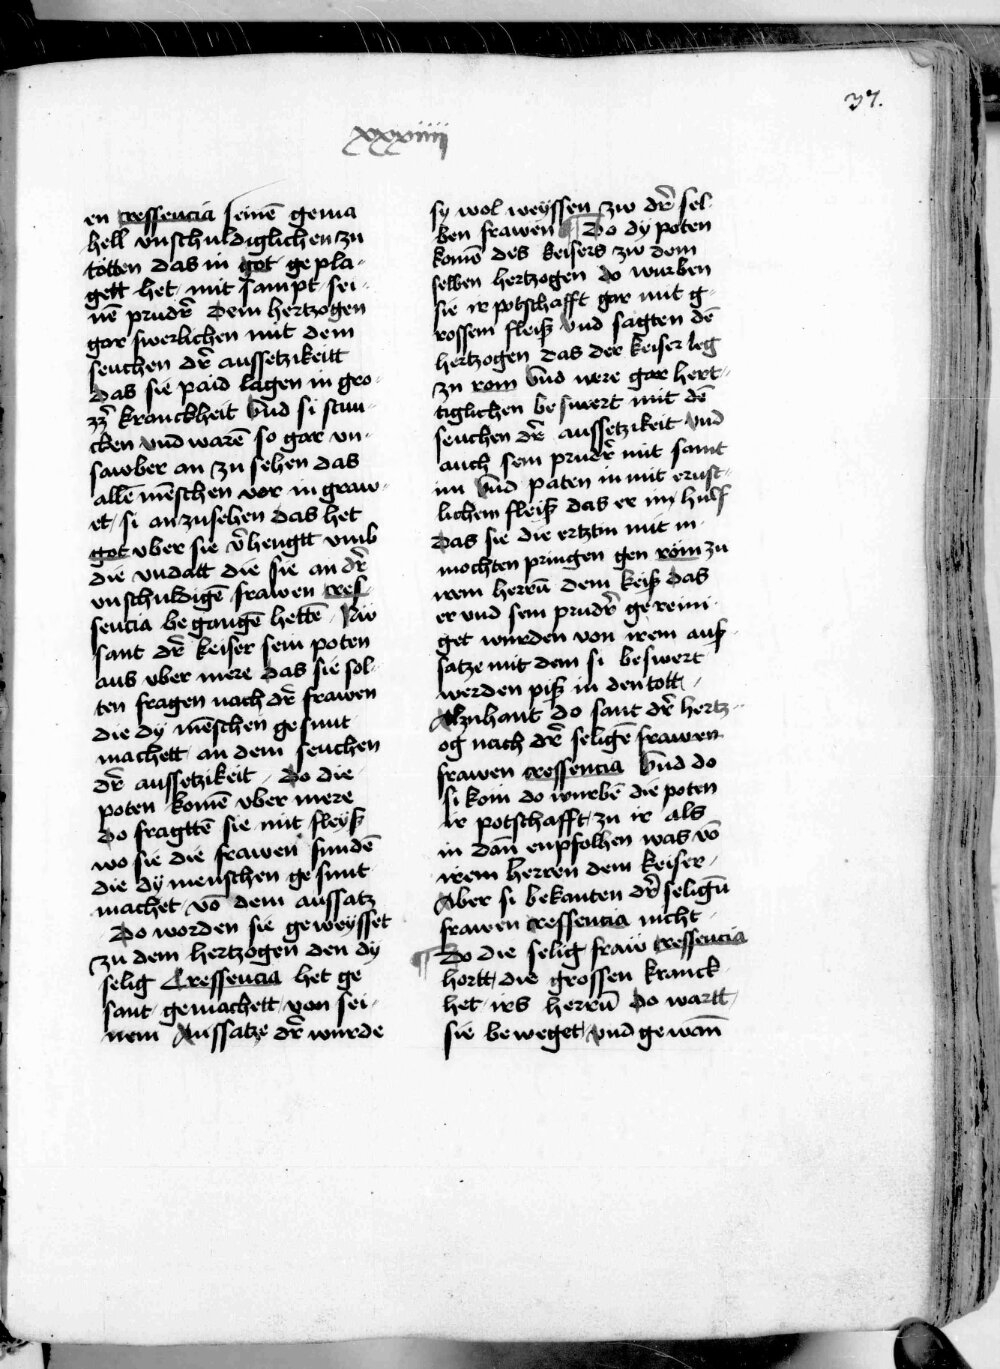 37.
xxxviiii
en cressencia seinē gema
hell vnschuldiglichen zu
tötten das in got gepla-
gett het mit sampt sei-
nē prudr̄ Dem hertzogen
gar swerlichen mit dem
seuchen dr̄ aussetzikeitt
das sie paid lagen in gro-
zz̄ kranckheit vnd si stun-
cken vnd warē so gar vn-
sawber an zu sehen das
allē mēschen vor in graw-
et si an zusehen das het
got vber sie v̄hengtt vmb
die vndatt die sie an dr̄
vnschuldigē frawen cres
sencia begangē hettē Nw
sant dr̄ keiser sein poten
aus vber mere das sie sol-
ten fragen nach dr̄ frawen
die dy mēschen gesunt
machett an dem seuchen
dr̄ aussetzikeit do die
poten komē vber mere
do fragttē sie mit fleyß
wo sie die frawen fundē
die dy menschen gesunt
machet vō dem aussatz
Do worden sie geweysset
zu dem hertzogen den dy
selig Cressencia het ge
sant gemachett von sei-
nem Aussatze dr̄ wurde
sy wol weyssen zw dr̄ sel
ben frawen Do dy poten
komē des keisers zw dem
selben hertzogen do wurben
sie ir potschafft gar mit g-
rossem fleiß vnd sagten dē
hertzogen das der keiser leg
zu rom vnd were gar hert-
tiglichen beswert mit dē
seuchen dr̄ aussetzikeit vnd
auch sein prudr̄ mit samt
im vnd paten in mit ernst-
lichem fleiß das er im hulf
das sie die ertztin mit in
mochten pringen gen rom zu
irem herrn̄ dem keiß das
er vnd sein prudr̄ gereini-
get wurden von irem auß-
satze mit dem si beswert
werden piß in den tott
Alzuhant do sant dr̄ hertz-
og nach dr̄ seligē frawen
frawen cressencia Vnd do
si kom do wurbē die poten
ir potschafft zu ir als
in dan̄ enpfolhen was vō
irem herren dem keiser
Aber si bekanten dr̄ selign̄
frawen cressencia nicht
Do die selig fraw cressencia
hortt die grossen kranck
het irs herrn̄ do wartt
sie beweget vnd gewan̄